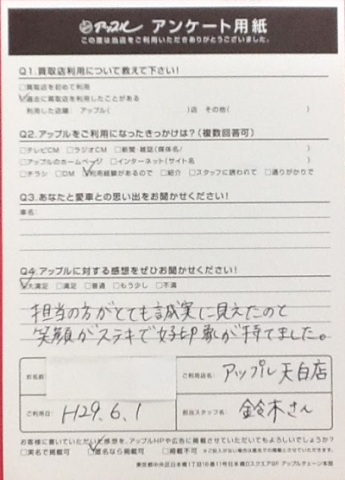 アップル アンケート用紙
この度は当店をご利用いただきありがとうございました。
Q1.買取店利用について教えて下さい!
□買取店を初めて利用
□過去に買取店を利用したことがある
利用した店舗. アップル( )店 その他( )
Q2.アップルをご利用になったきっかけは?(複数回答可)
□テレビCM □ラジオCM □新聞・雑誌(媒体名/ )
□アップルのホームページ □インターネット(サイト名 )
□チラシ □DM □利用経験があるので □紹介 □スタッフに誘われて □通りがかりで
Q3.あなたと愛車との思い出をお聞かせください!
車名:
Q4.アップルに対する感想をぜひお聞かせください!
□大満足 □満足 □普通 □もう少し □不満
担当の方がとても誠実に見えたのと
笑顔がステキで好印象が持てました。
お名前
ご利用店名 アップル 天白店
ご利用日 H29.6.1
担当スタッフ名 鈴木さん
お客様に書いていただいた感想を、アップルHPや広告に掲載させていただいてもよろしいでしょうか?
□実名で掲載可 □匿名なら掲載可 □掲載不可